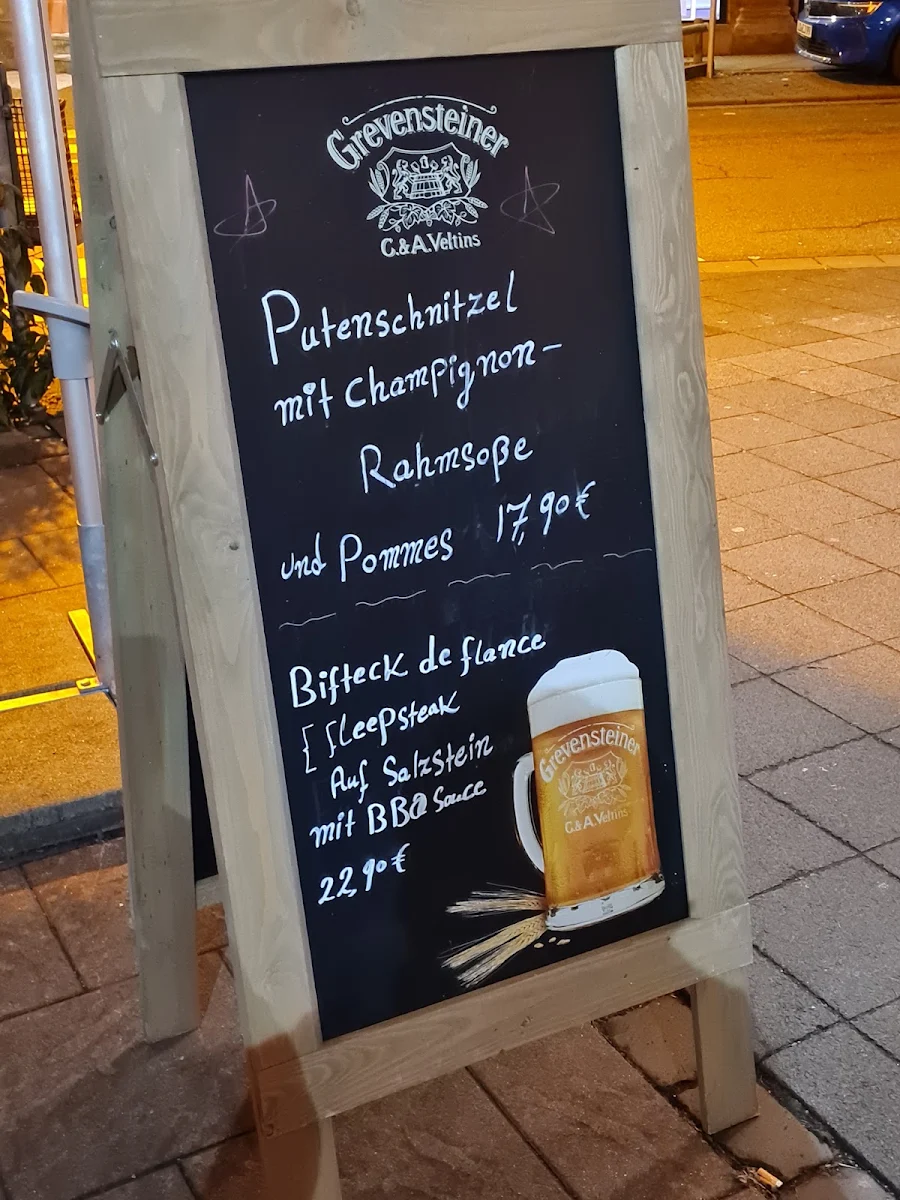 Grevensteiner
C.&A.Veltins
Putenschnitzel
mit Champignon-
Rahmsoße
und Pommes 17,90€
Bifteck de flance
[fleepsteak
Auf Salzstein
mit BBQ Sauce
22,90€
Grevensteiner
C.&A.Veltins